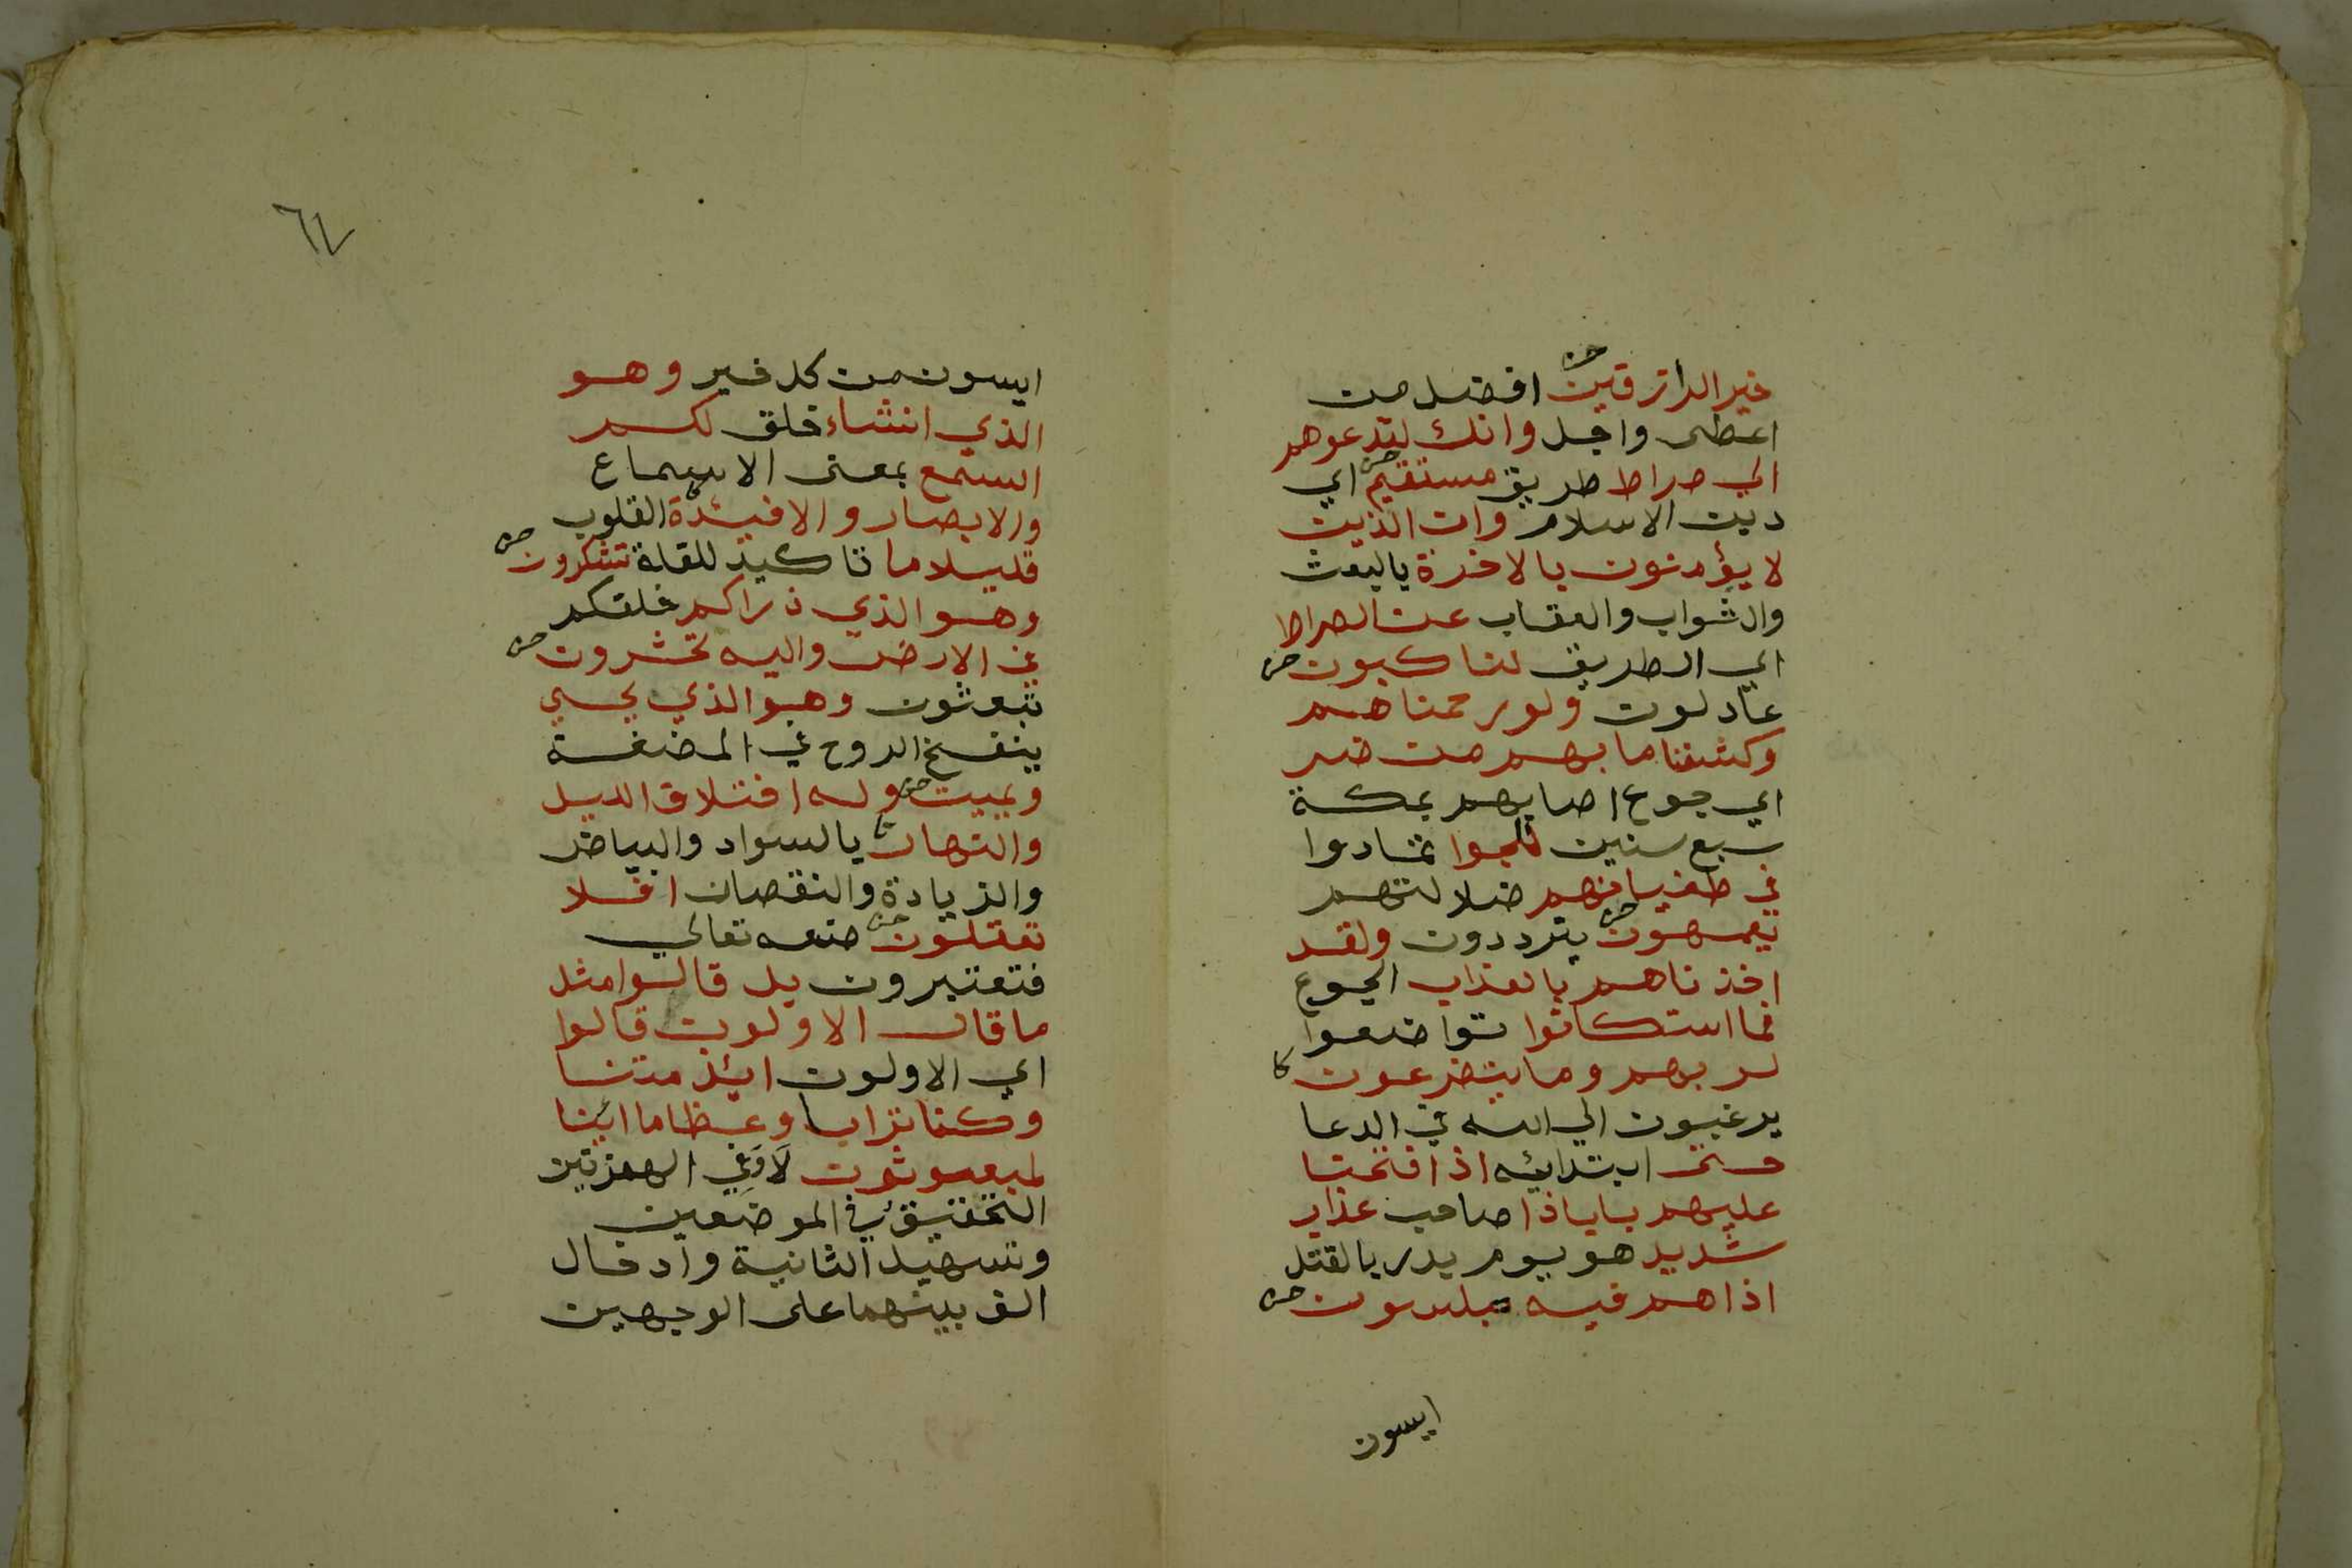 خير الرازقين افضل من
اعطى واجل وانك لتدعوهم
الي صراط طريق مستقيم اي
دين الاسلام وان الذين
لا يؤمنون بالاخرة بالبعث
والثواب والعقاب عن الصراط
اي الطريق لناكبون
عادلون ولو رحمناهم
وكشفنا ما بهم من ضر
اي جوع اصابهم بمكة
سبع سنين للجوا تمادوا
في طغيانهم ضلالتهم
يعمهون يترددون ولقد
اخذناهم بالعذاب الجوع
فما استكانوا تواضعوا
لربهم وما يتضرعون
يرغبون الي الله في الدعا
حتى ابتدائيه اذا فتحنا
عليهم بابا ذا صاحب عذاب
شديد هو يوم بدر بالقتل
اذا هم فيه مبلسون
ايسون
٦٧
ايسون من كل خير وهو
الذي انشاء خلق لكم
السمع بمعنى الاسماع
والابصار والافئدة القلوب
قليلا ما تاكيد للقلة تشكرون
وهو الذي ذراكم خلقكم
في الارض واليه تحشرون
تبعثون وهو الذي يحيي
بنفخ الروح في المضغة
ويميت وله اختلاف الليل
والنهار بالسواد والبياض
والزيادة والنقصان افلا
تعقلون صنعه تعالي
فتعتبرون بل قالوا مثل
ما قال الاولون قالوا
اي الاولون ائذ متنا
وكنا ترابا وعظاما ائنا
لمبعوثون لَا وَفِي الهمزتين
التحقيق في الموضعين
وتسهيل الثانية وادخال
الف بينهما على الوجهين